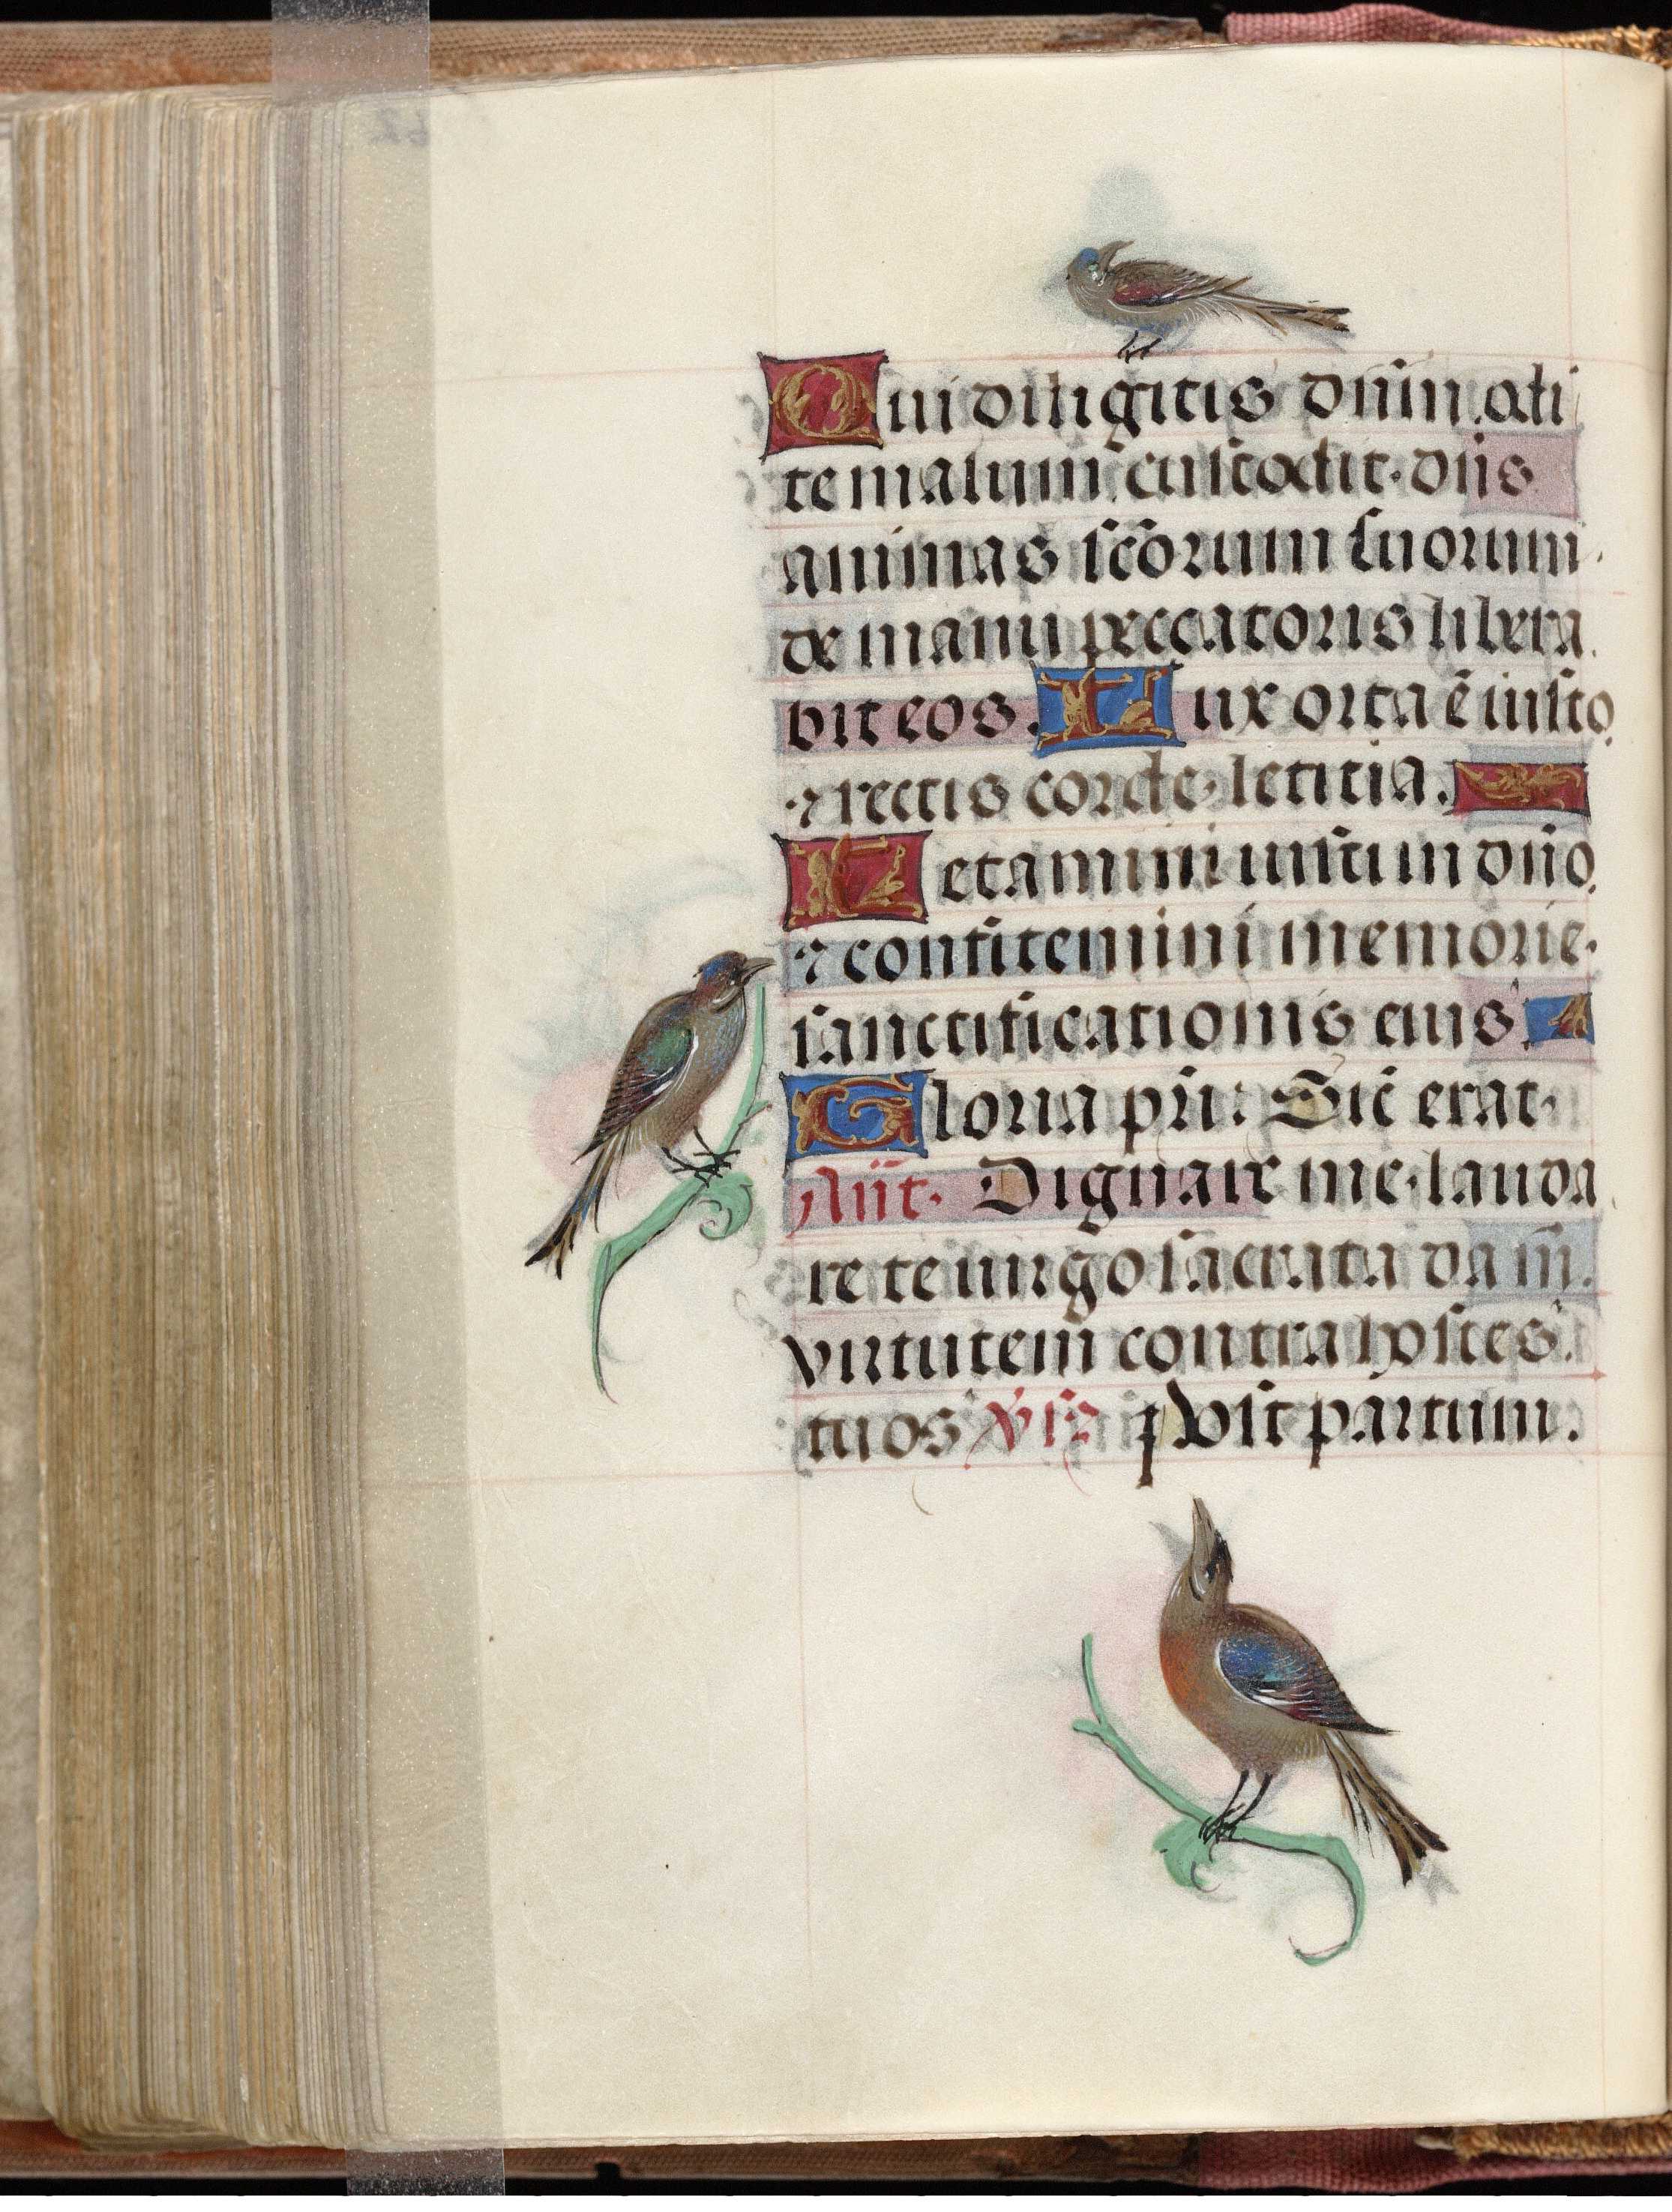 Qui diligitis dn̄m odi
te malum custodit dn̄s
animas sc̄orum suorum
de manu peccatoris libera
bit eos. Lux orta ē iusto
⁊ rectis corde letitia.
Letamini iusti in dn̄o
⁊ confitemini memorie
sanctificationis eius.
Gloria pr̄i: Sic̄ erat
An̄t. Dignare me lauda
re te uirgo sacrata da m̄.
virtutem contra hostes
tuos Post partum.